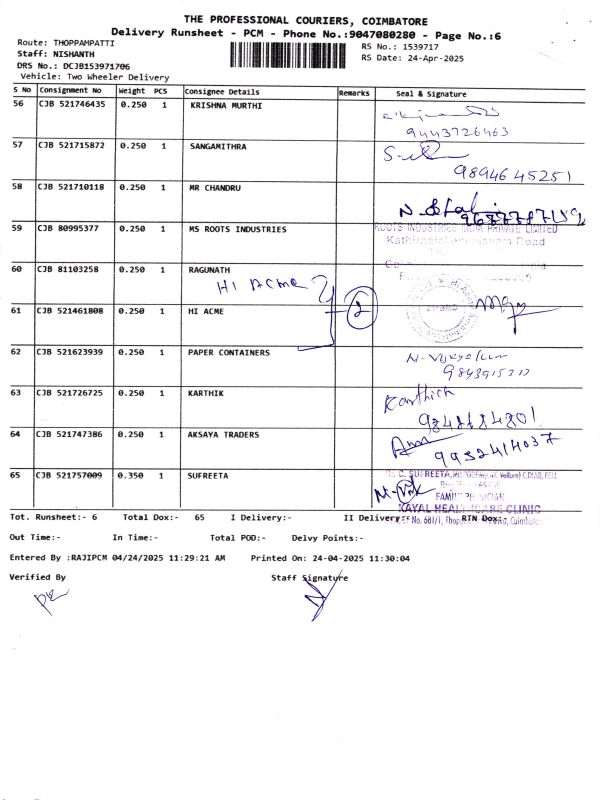 THE PROFESSIONAL COURIERS, COIMBATORE
Delivery Runsheet - PCM - Phone No.:9047080280 - Page No.:6
Route: THOPPAMPATTI
Staff: NISHANTH
DRS No.: DCJB153971706
Vehicle: Two Wheeler Delivery
RS No.: 1539717
RS Date: 24-Apr-2025
S No Consignment No Weight PCS Consignee Details Remarks Seal & Signature
56 CJB 521746435 0.250 1 KRISHNA MURTHI
9443726463
57 CJB 521715872 0.250 1 SANGAMITHRA
9894645251
58 CJB 521710118 0.250 1 MR CHANDRU
59 CJB 80995377 0.250 1 MS ROOTS INDUSTRIES
ROOTS INDUSTRIES INDIA PRIVATE LIMITED
60 CJB 81103258 0.250 1 RAGUNATH
HI Acme
2
61 CJB 521461808 0.250 1 HI ACME
62 CJB 521623939 0.250 1 PAPER CONTAINERS
63 CJB 521726725 0.250 1 KARTHIK
Karthick
64 CJB 521747386 0.250 1 AKSAYA TRADERS
9952414037
65 CJB 521757009 0.350 1 SUFREETA
C. SUFREETA,
FAMILY PHYSICIAN
KAYAL HEALTHCARE CLINIC
Tot. Runsheet:- 6 Total Dox:- 65 I Delivery:- II Delivery:- RTN Dox:-
Out Time:- In Time:- Total POD:- Delvy Points:-
Entered By :RAJIPCM 04/24/2025 11:29:21 AM Printed On: 24-04-2025 11:30:04
Verified By Staff Signature